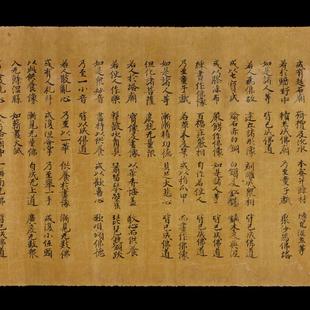 或有起石廟 栴檀及沈水 木櫁并餘材 塼瓦泥土等
若於曠野中 積土成佛廟 乃至童子戲 聚沙為佛塔
如是諸人等 皆已成佛道
若人為佛故 建立諸形像 刻雕成眾相 皆已成佛道
或以七寶成 鍮石赤白銅 白鑞及鉛錫 鐵木及與泥
或以膠漆布 嚴飾作佛像 如是諸人等 皆已成佛道
綵畫作佛像 百福莊嚴相 自作若使人 皆已成佛道
乃至童子戲 若草木及筆 或以指爪甲 而畫作佛像
如是諸人等 漸漸積功德 具足大悲心 皆已成佛道
但化諸菩薩 度脫無量眾
若人於塔廟 寶像及畫像 以華香幡蓋 敬心而供養
若使人作樂 擊鼓吹角貝 簫笛琴箜篌 琵琶鐃銅鈸
如是眾妙音 盡持以供養 或以歡喜心 歌唄頌佛德
乃至一小音 皆已成佛道
若人散亂心 乃至以一華 供養於畫像 漸見無數佛
或有人礼拜 或復但合掌 乃至舉一手 或復小低頭
以此供養像 漸見無量佛 自成無上道 廣度無數眾
入無餘涅槃 如薪盡火滅
若人散亂心 入於塔廟中 一稱南無佛 皆已成佛道